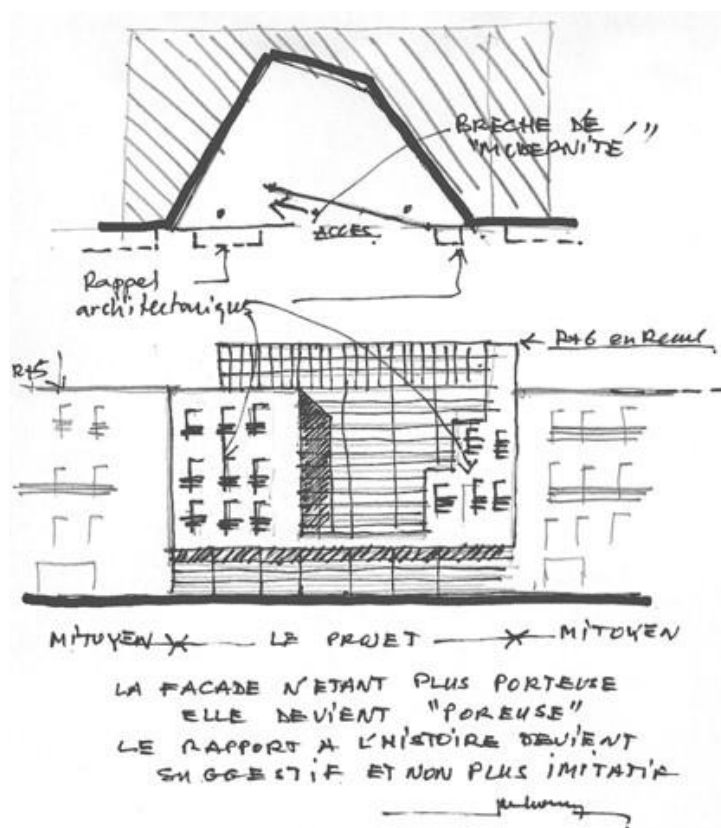 BRECHE DE
"MODERNITE"
ACCES
Rappel
architectonique
R+6 en Recul
R+5
MITOYEN
LE PROJET
MITOYEN
LA FACADE N'ETANT PLUS PORTEUSE
ELLE DEVIENT "POREUSE"
LE RAPPORT A L'HISTOIRE DEVIENT
SUGGESTIF ET NON PLUS IMITATIF